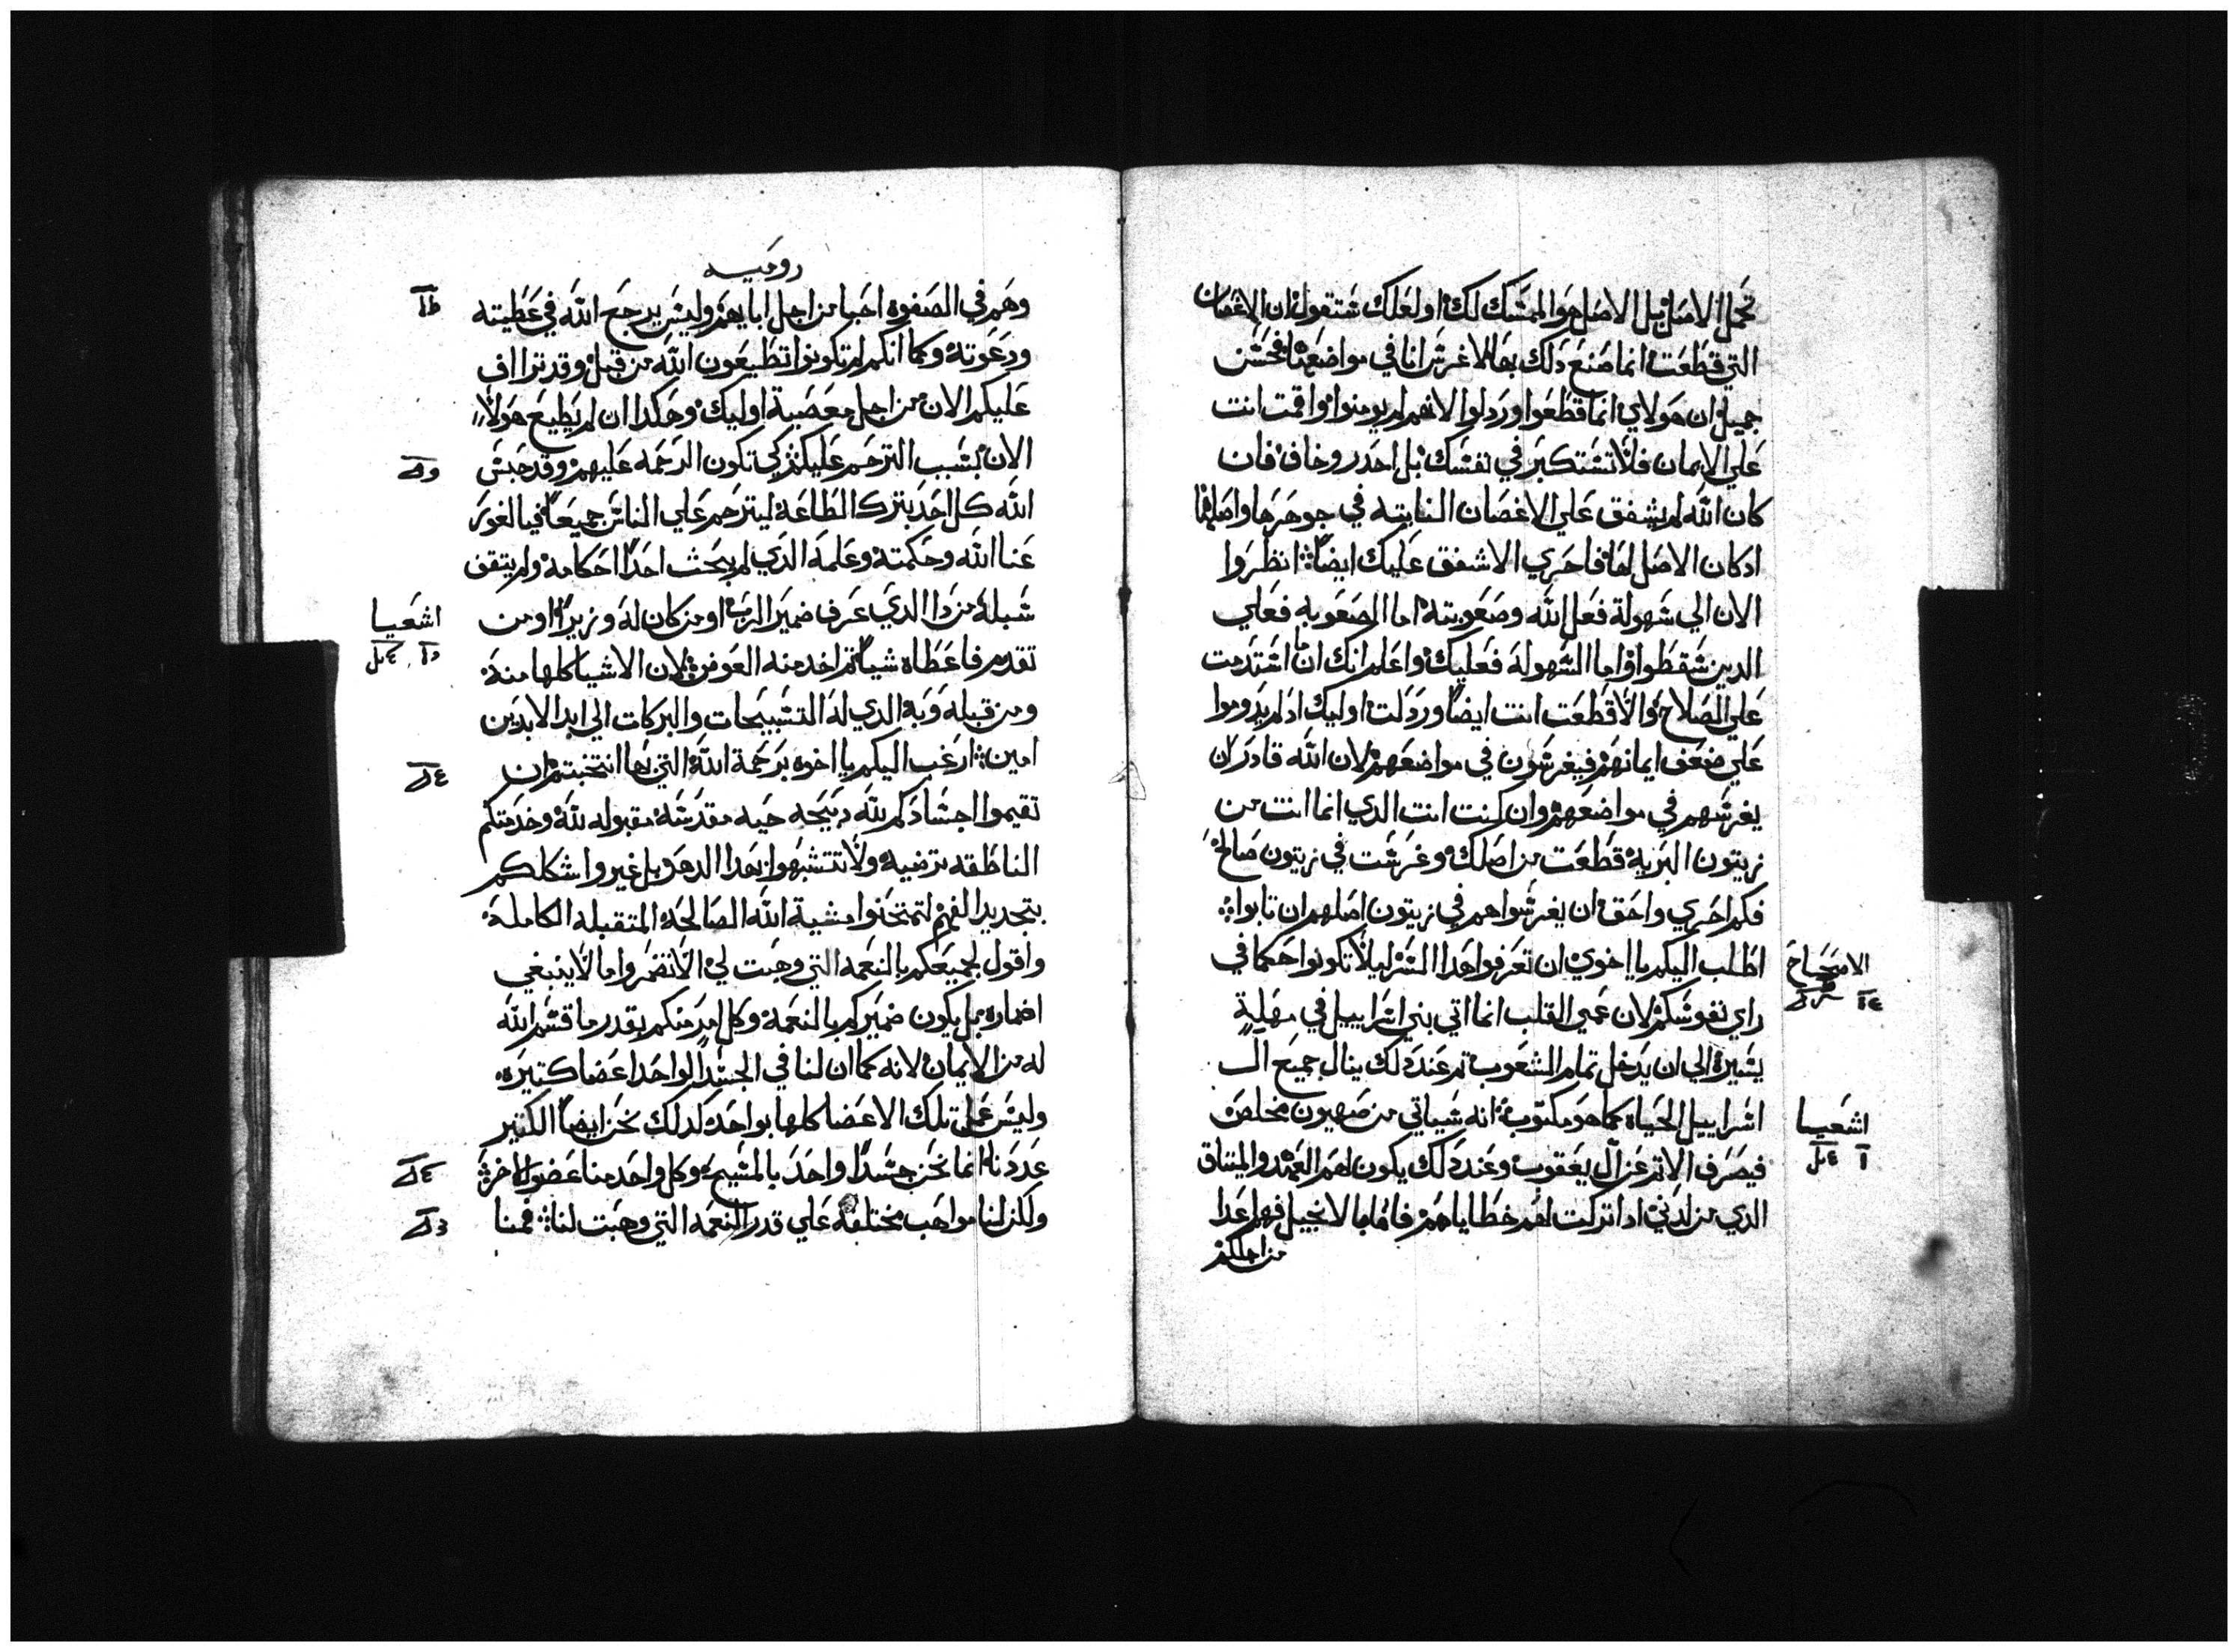 تحمل الاصل بل الاصل هو الممسك لك او لعلك ستقول ان الاغصان
التي قطعت انما صنع دلك بها لاغرس انا في مواضعها فحسن
جميل ان هولاي انما قطعوا وردلوا لانهم لم يومنوا واقمت انت
علي الايمان فلا تستكبر في نفسك بل احدر وخاف فان
كان الله لم يشفق علي الاغصان النابته في جوهرها واصلها
ادكان الاصل لها فاحري الا شفق عليك ايضا انظروا
الان الي سهولة فعل الله وصعوبته اما الصعوبه فعلي
الدين سقطوا واما السهوله فعليك واعلم انك ان استدمت
علي الصلاح والا قطعت انت ايضا وردلت اوليك اد لم يدوموا
علي ضعف ايمانهم فيغرسون في مواضعهم لان الله قادر ان
يغرسهم في مواضعهم وان كنت انت الدي انما انت من
زيتون البرية قطعت من اصلك وغرست في زيتون صالح
فكم احري واحق ان يغرسواهم في زيتون اصلهم ان تابوا
اطلب اليكم يا اخوي ان تعرفوا هدا السر ليلا تكونوا حكما في
الاصحاح
راي نفوسكم لان عمي القلب انما اتي بني اسراييل في مهلة
يسيرة الي ان يدخل تمام الشعوب تم عند دلك ينال جميع ال
اسراييل الحياه كما هو مكتوب انه سياتي من صهيون مخلص
اشعيا
فيصرف الاتم عن ال يعقوب وعند دلك يكون لهم العهد والميتاق
الدي من لدني ادا تركت لهم خطاياهم فاما بالانجيل فهم اعدا
من اجلكم
روميه
وهم في الصفوه احبا من اجل ابايهم وليس يرجع الله في عطيته
ودعوته وكما انكم لم تكونوا تطيعون الله من قبل وقد تراف
عليكم الان من اجل معصية اوليك وهكدا ان لم يطيع هولاء
الان بسبب الترحم عليكم كي تكون الرحمه عليهم وقد حبس
الله كل احد بترك الطاعة ليترحم علي الناس جميعا فيا لغور
غنا الله وحكمته وعلمه الدي لم يبحث احدا احكامه ولم يتقفى
سبله من دا الدي عرف ضمير الرب او من كان له وزيرا او من
اشعيا
تقدم فاعطاه شيا تم اخد منه العوض لان الاشيا كلها منه
ومن قبله وبه الدي له التسبيحات والبركات الي ابد الابدين
امين ارغب اليكم يا اخوه برحمة الله التي بها انتخبتم ان
تقيموا اجسادكم لله دبيحه حيه مقدسه مقبوله لله وخدمتكم
الناطقه مرضية ولا تتشبهوا بهدا الدهر بل غيروا شكلكم
بتجديد الفهم لتمتحنوا مشية الله الصالحه المتقبله الكاملة
واقول لجميعكم بالنعمه التي وهبت لي الا تضمروا ما لا ينبغي
اضماره بل يكون ضميركم بالنعمة وكل امر منكم بقدر ما قسم الله
له من الايمان لانه كما ان لنا في الجسد الواحد اعضا كتيره
وليس عمل تلك الاعضا كلها بواحد كدلك نحن ايضا الكتير
عددنا انما نحن جسدا واحد بالمسيح وكل واحد منا عضو الاخر
ولكن لنا مواهب مختلفه علي قدر النعمه التي وهبت لنا فمنا